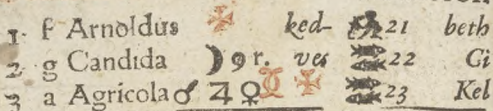 1 f Arnoldus ✠ ked- 21 beth
2 g Candida ☽ 9 r. ves 22 Ci
3 a Agricola ♂ ♃ ♀ ✠ 23 Kel